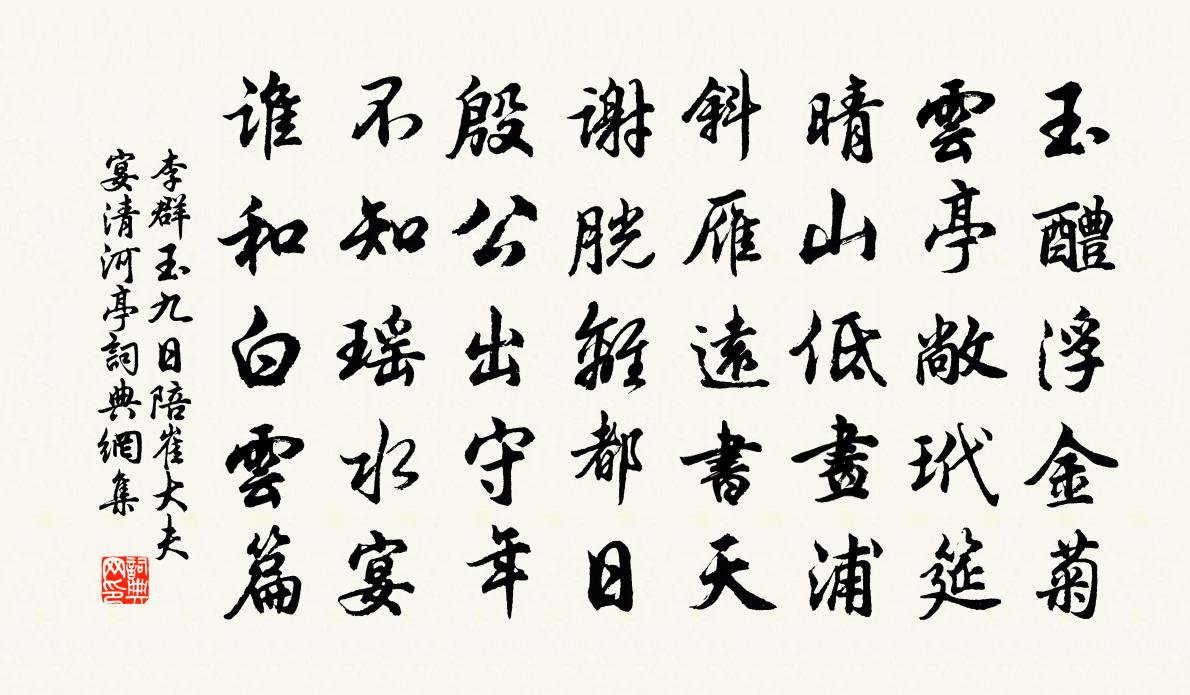 玉醴浮金菊
雲亭敞玳筵
晴山低畫浦
斜雁遠書天
謝朓離都日
殷公出守年
不知瑶水宴
谁和白雲篇
李群玉九日陪崔大夫
宴清河亭詞典網集
詞典
网印